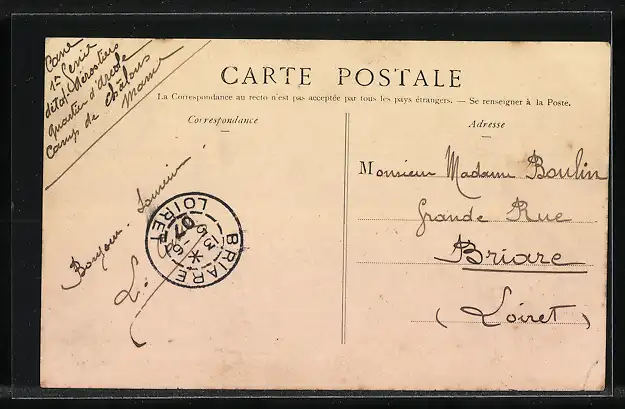 1er Génie
détat. Aérostiers
quartier d'Arcole
Camp de Châlons
Marne
CARTE POSTALE
La Correspondance au recto n'est pas acceptée par tous les pays étrangers. — Se renseigner à la Poste.
Correspondance
Adresse
Monsieur Madame Boulin
Grande Rue
Briare
(Loiret)
Bonjour. Souvenir
L.
BRIARE
13
07
LOIRET